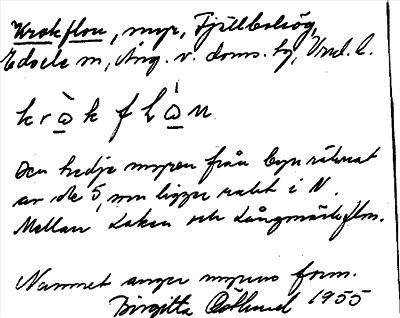 Krokflon, myr, Fjällbohög,
Edsele sn, Ång. v. doms. hg, Vnrl. l.
kròk flòn
Den tredje myren från byn räknat
av de 5, som ligger rakt i N.
Mellan Laken och Långmårtsflon.
Namnet anger myrens form.
Birgitta Östlund 1955